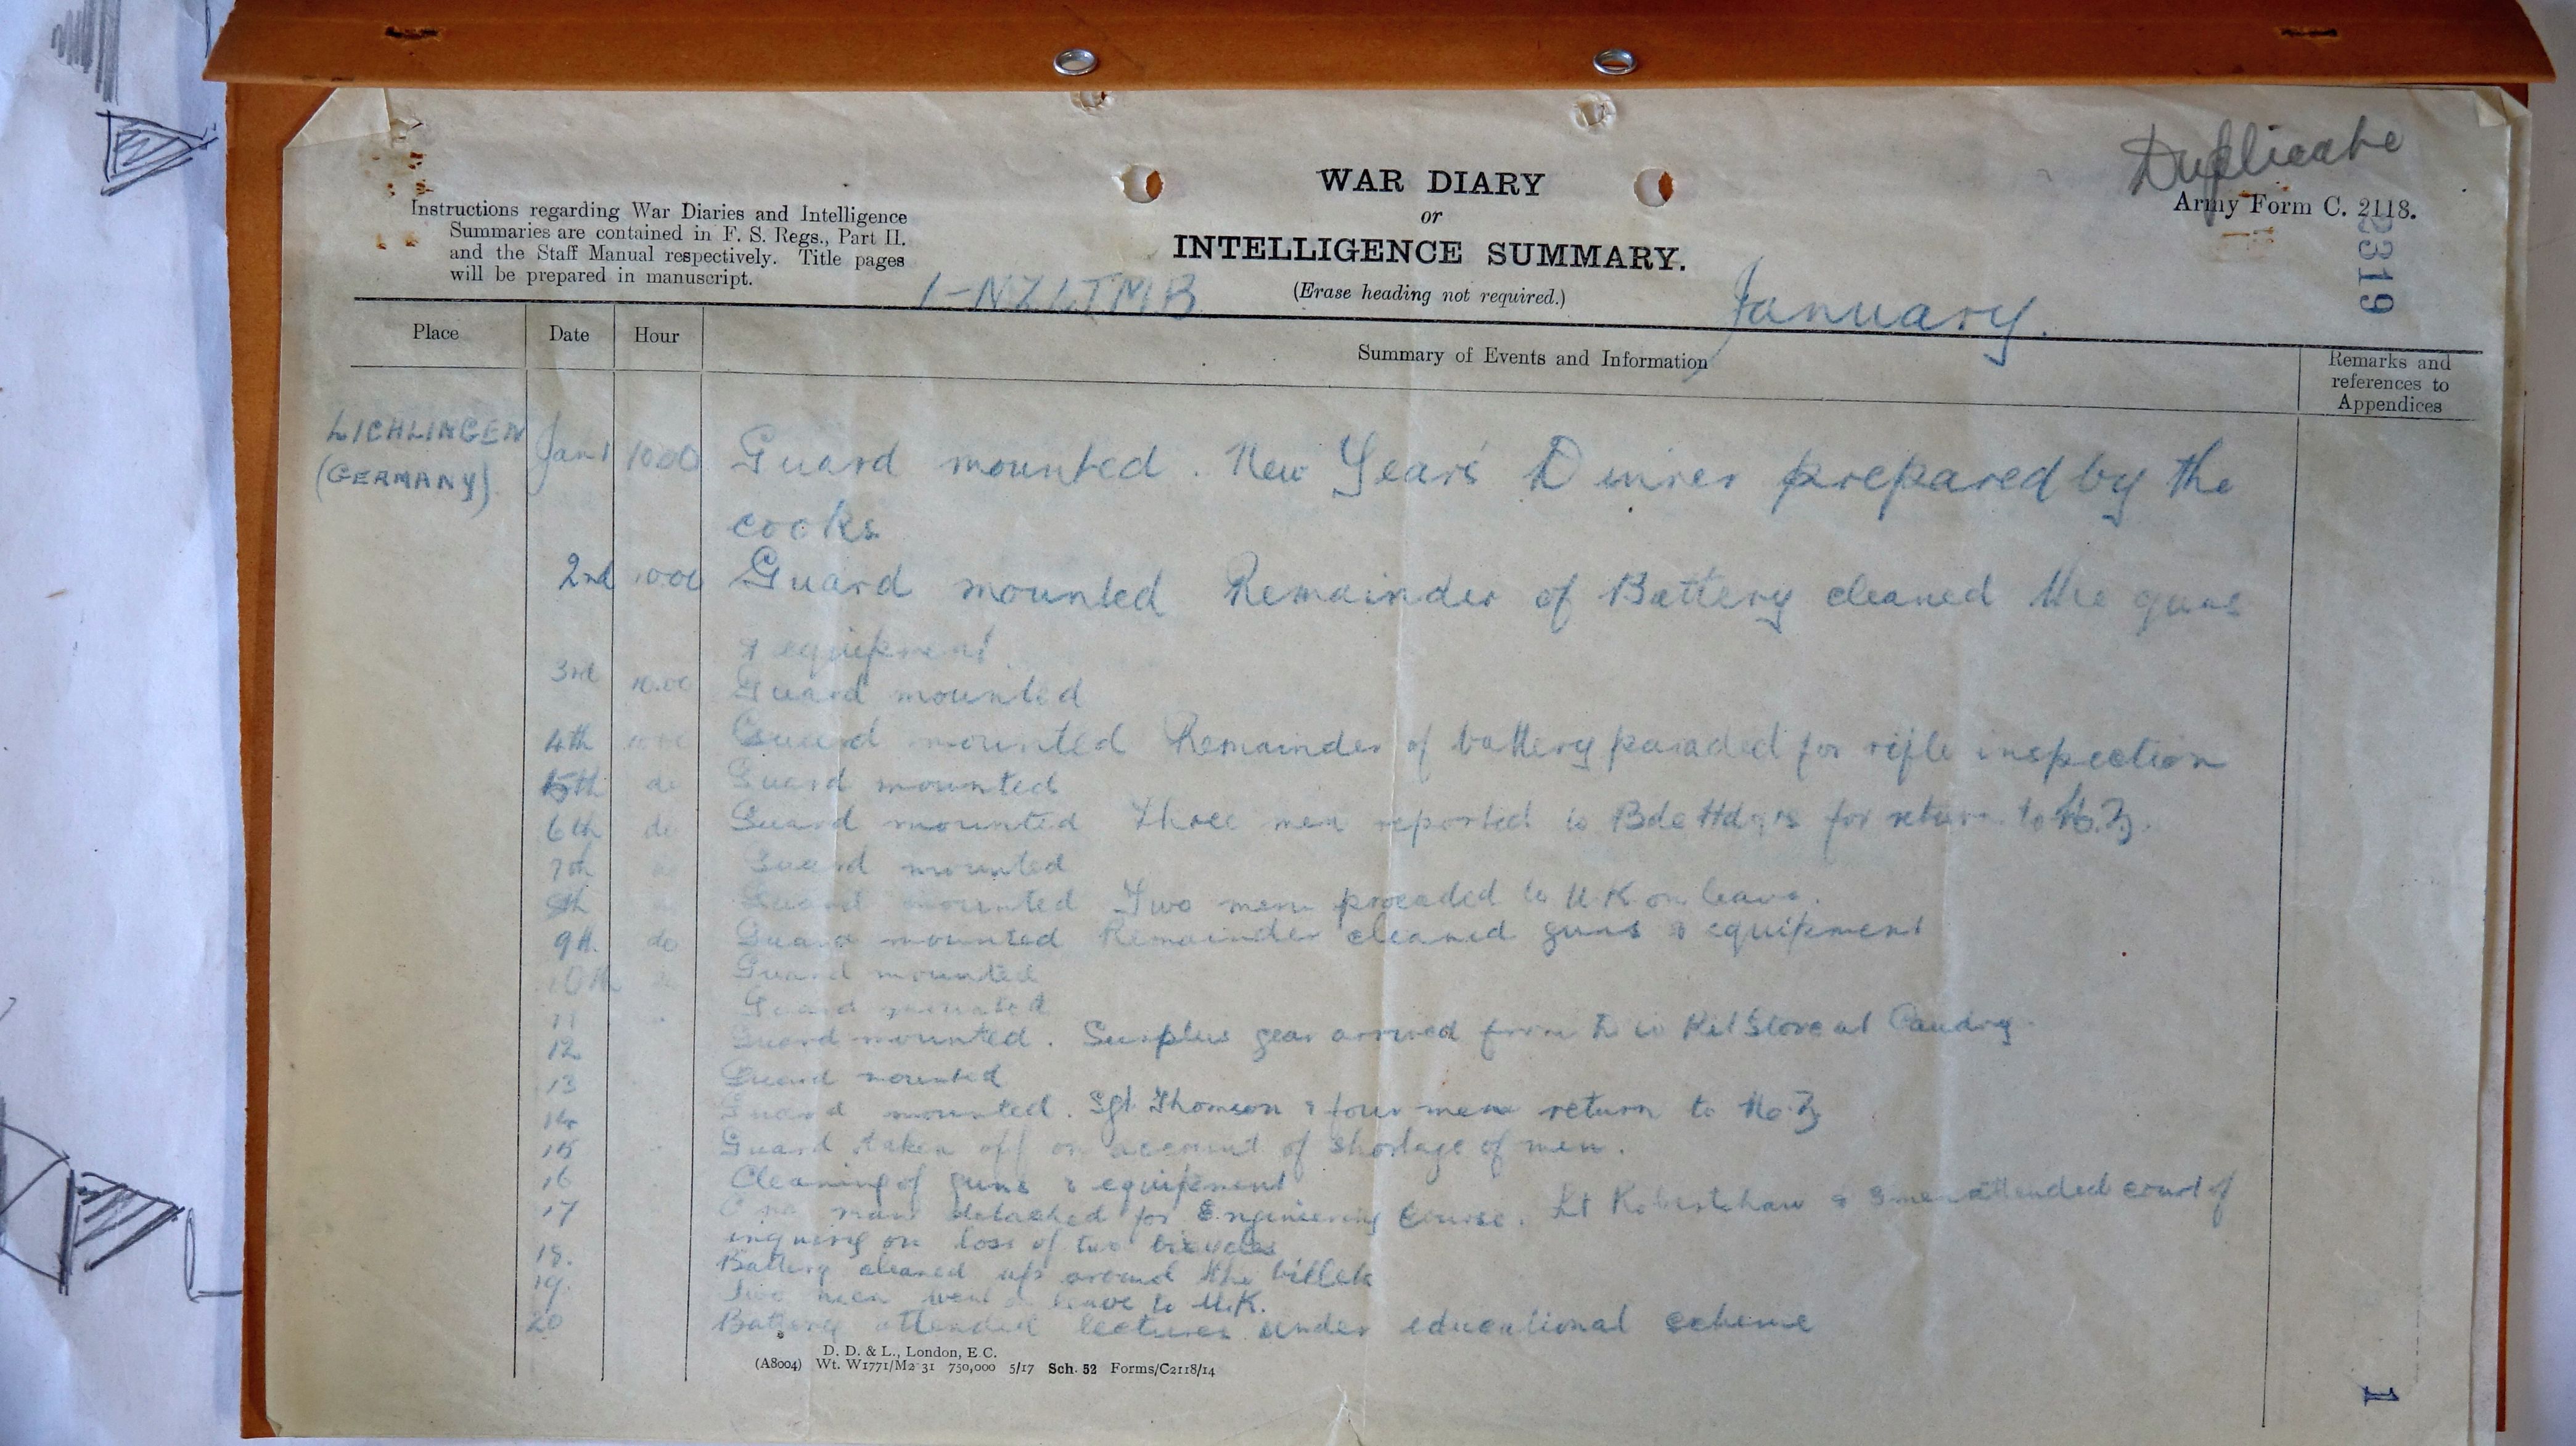 Duplicate
WAR DIARY
or
INTELLIGENCE SUMMARY.
(Erase heading not required.)
Army Form C. 2118.
Instructions regarding War Diaries and Intelligence
Summaries are contained in F. S. Regs., Part II.
and the Staff Manual respectively. Title pages
will be prepared in manuscript.
1-NZLTMB
January.
3319
Place Date Hour Summary of Events and Information Remarks and
references to
Appendices
LICHLINGEN Jan 1 10.00 Guard mounted. New Year's Dinner prepared by the
(GERMANY) cooks
2nd 10.00 Guard mounted Remainder of Battery cleaned the guns
& equipment
3rd 10.00 Guard mounted
4th 10.00 Guard mounted Remainder of battery paraded for rifle inspection
5th do Guard mounted
6th do Guard mounted Three men reported to Bde Hdqrs for return to N.Z.
7th do Guard mounted
8th do Guard mounted Two men proceded to U.K on leave.
9th. do Guard mounted Remainder cleaned guns & equipment
10th do Guard mounted
11 Guard mounted
12 Guard mounted. Surplus gear arrived from Kit Store at Caudry.
13 Guard mounted
14 Guard mounted. Sgt Thomson & four men return to N.Z
15 Guard taken off on account of shortage of men.
16 Cleaning of guns & equipment
17 One man detached for Engineering Course. Lt Robertshaw & 3 men attended court of
inquiry on loss of two bicycles
18. Battery cleaned up around the billets
19. Two men went on leave to U.K.
20 Battery attended lectures under educational scheme
D. D. & L., London, E.C.
(A8004) Wt. W1771/M2 31 750,000 5/17 Sch. 52 Forms/C2118/14
1